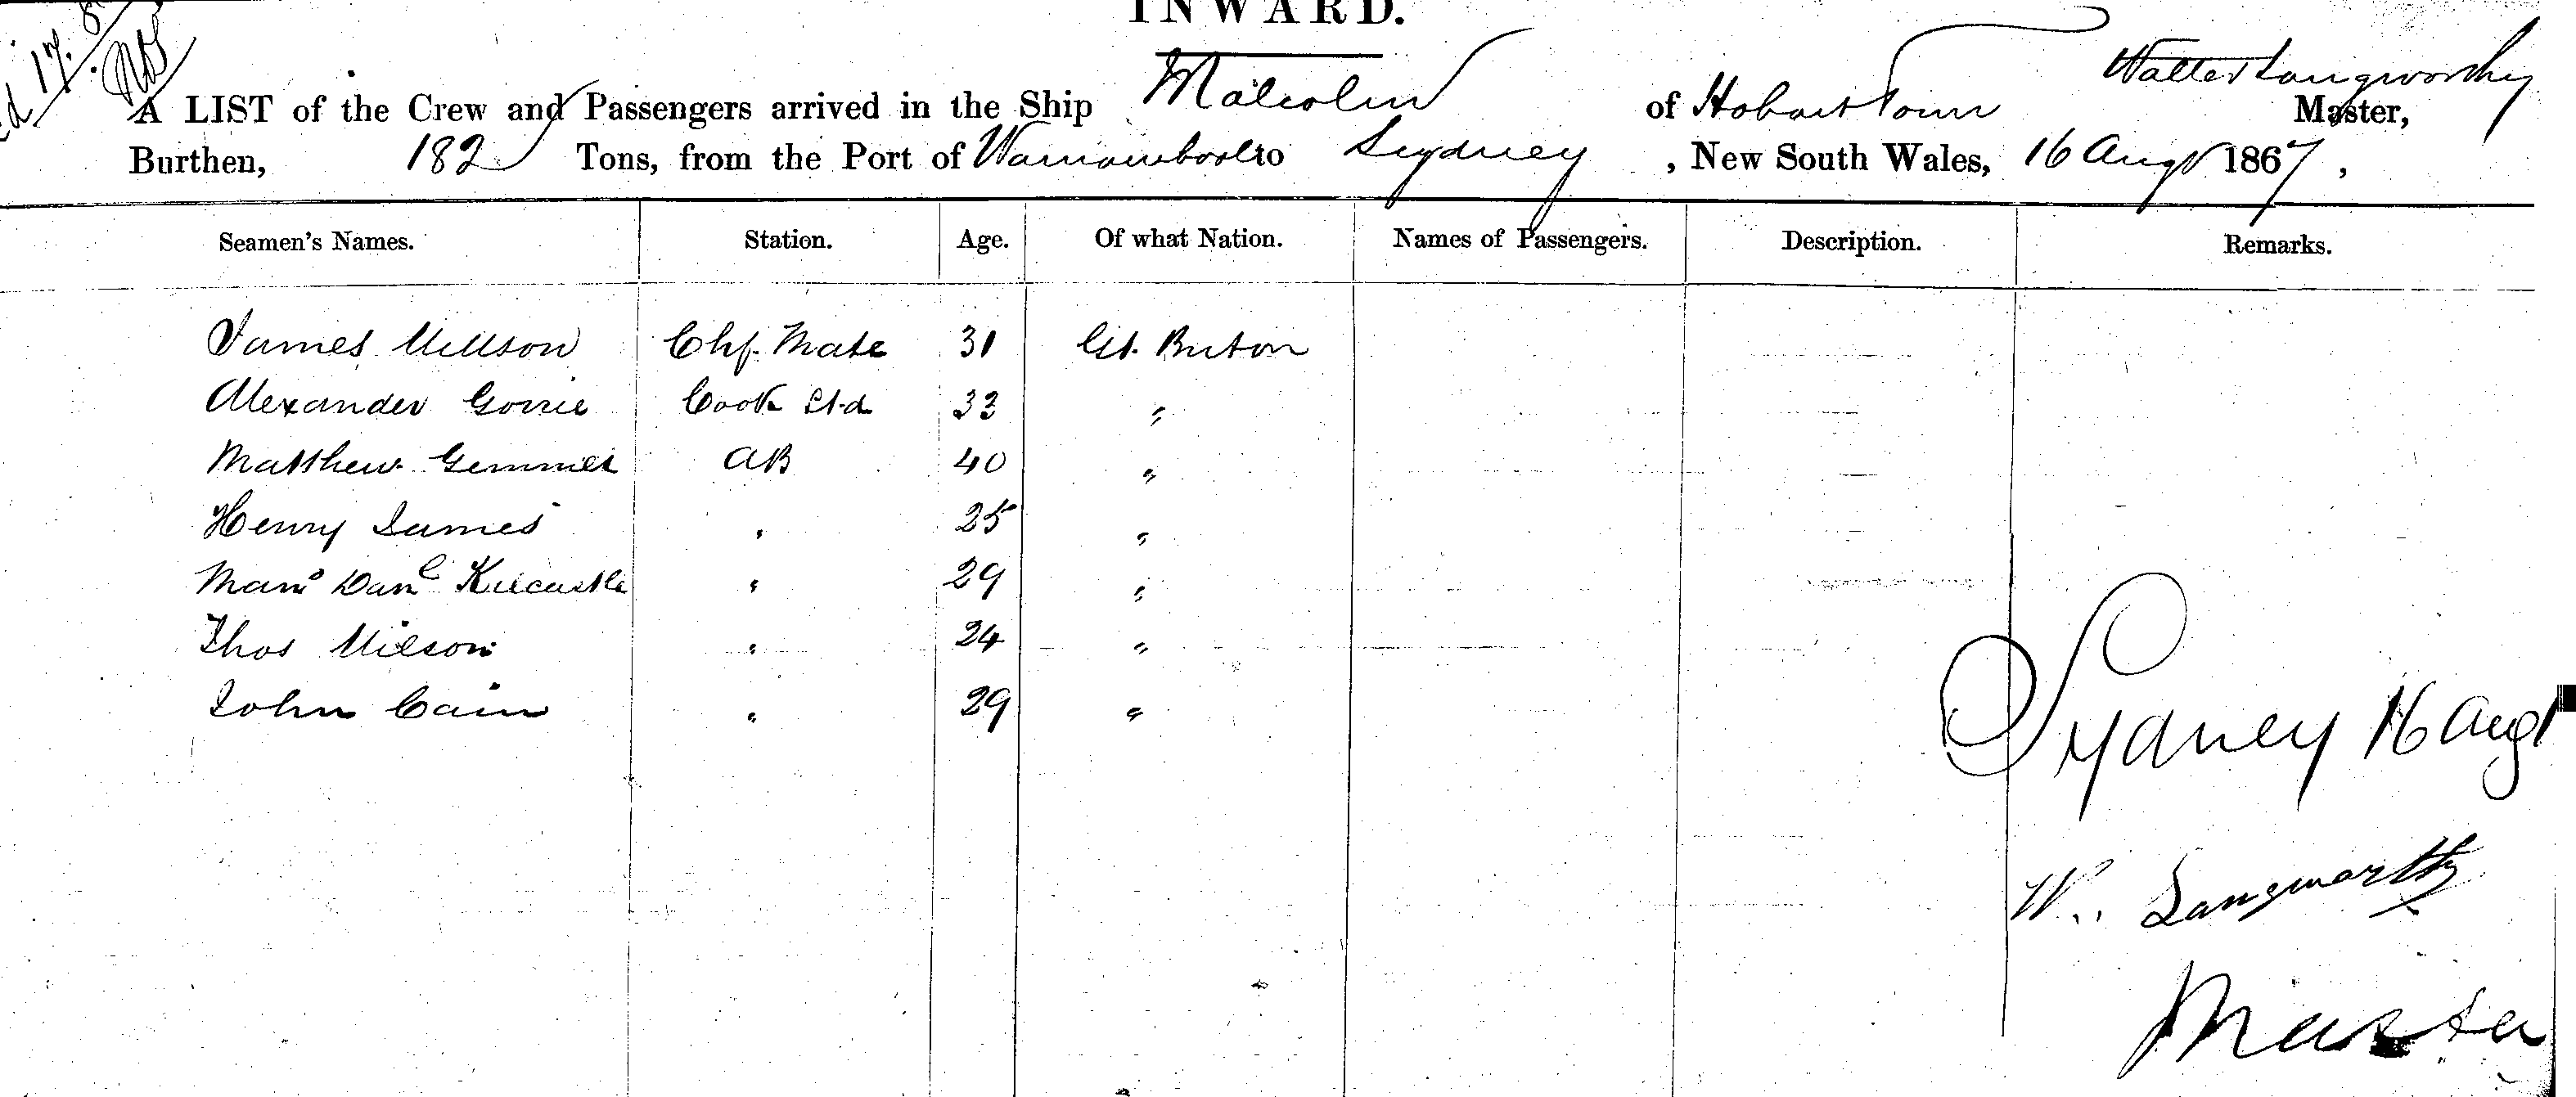 INWARD.
A LIST of the Crew and Passengers arrived in the Ship Malcolm of Hobart Town Walter Langworthy Master,
Burthen, 182 Tons, from the Port of Warrnambool to Sydney, New South Wales, 16 Augt 1867,
Seamen's Names. Station. Age. Of what Nation. Names of Passengers. Description. Remarks.
James Willson Chf. Mate 31 Gt. Briton
Alexander Gorrie Cook Std 33 "
Matthew Gemmel AB 40 "
Henry James " 25 "
Danl Kilcastle " 29 "
Thos Wilson " 24 "
John Cain " 29 "
Sydney 16 Augt
W. Langworthy
Master